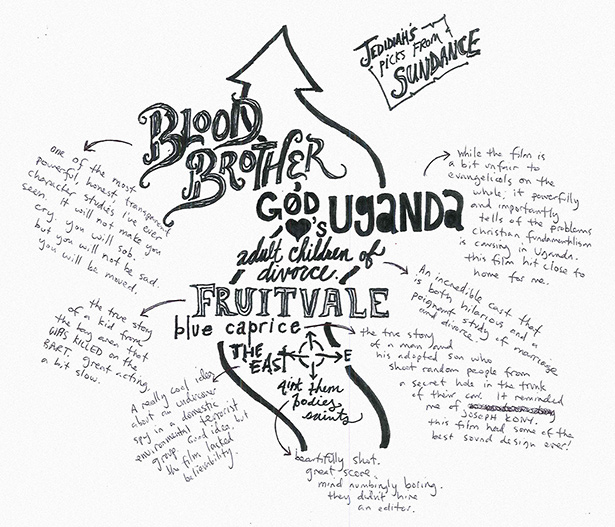 JEDIDIAH'S
PICKS FROM
SUNDANCE
BLOOD
BROTHER
GOD
♥'s UGANDA
adult children of
divorce.
FRUITVALE
blue caprice
THE
EAST
E
aint them
bodies
saints
one of the most
powerful, honest, transparent
character studies I've ever
seen. it will not make you
cry. you will sob.
but you will not be sad.
you will be moved.
while the film is
a bit unfair to
evangelicals on the
whole: it powerfully
and importantly
tells of the problems
christian fundamentalism
is causing in Uganda.
this film hit close to
home for me.
An incredible cast that
is both hilarious and a
poignant study of marriage
and divorce.
the true story
of a kid from
the bay area that
was KILLED on the
BART. great acting,
a bit slow.
the true story
of a man and
his adopted son who
shoot random people from
a secret hole in the trunk
of their car. It reminded
me of
JOSEPH KONY.
this film had some of the
best sound design ever!
A really cool idea
about an undercover
spy in a domestic
environmental terrorist
group. Good idea, but
the film lacked
believability.
beautifully shot.
great score.
mind numbingly boring.
they didn't hire
an editor.